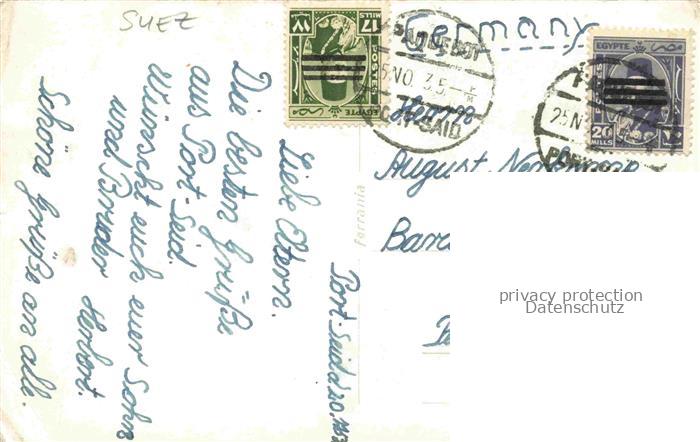 SUEZ
Port-Said d. 20.
Liebe Eltern.
Die besten Grüße
aus Port-Said.
Wünscht euch euer Sohn
und Bruder Herbert.
Schöne Grüße an alle.
Ferrania
Germany
Herrn
August
17
MILLS
١٧
POSTES
EGYPTE
PAQUEBOT
25 NO 35
PORT-SAID
EGYPTE
مصر
20
MILLS
25 N
privacy protection
Datenschutz